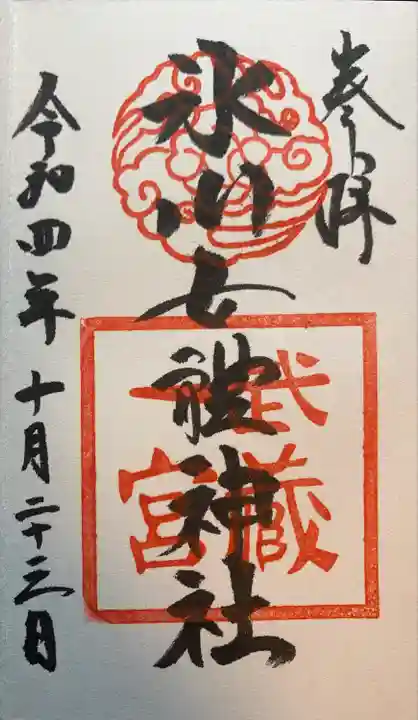 奉拝
氷川女體神社
武蔵
一宮
令和四年十月二十三日